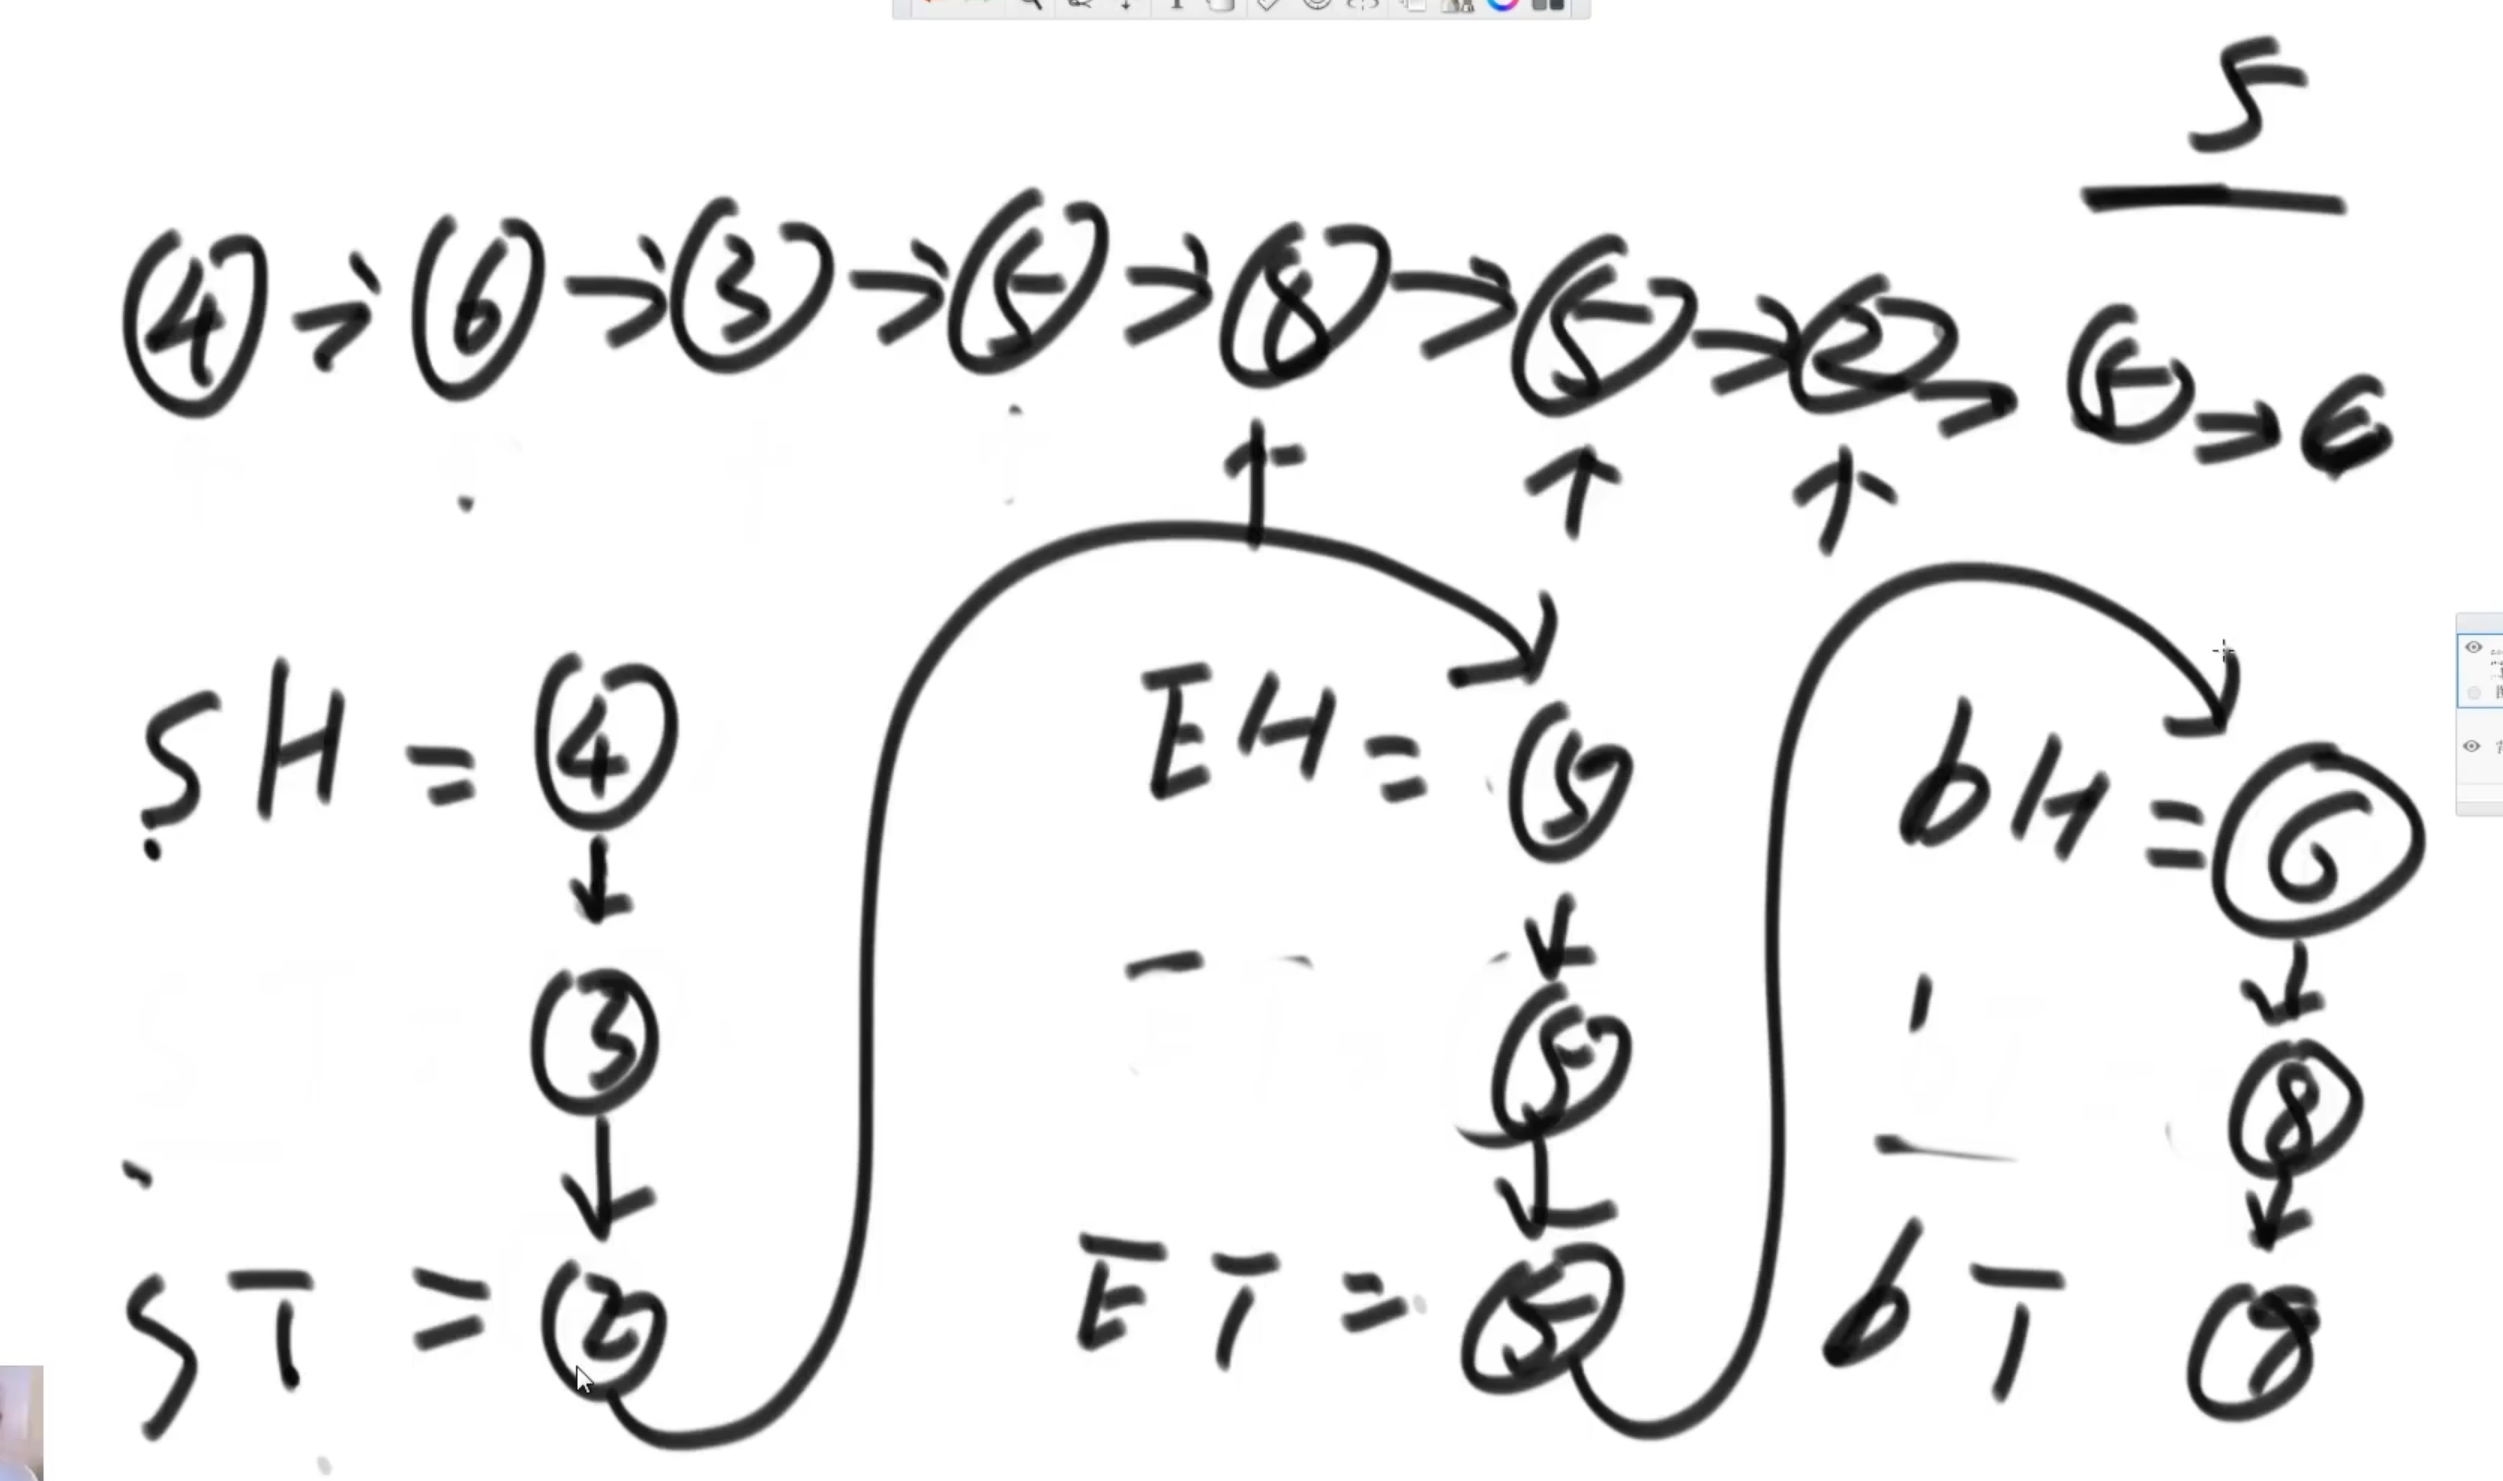 5
4 → 6 → 3 → 5 → 8 → 5 → 2 → 5 → 6
SH = 4
↓
3
↓
ST = 2
EH = 5
↓
5
↓
ET = 5
bH = 6
↓
8
↓
bT 8